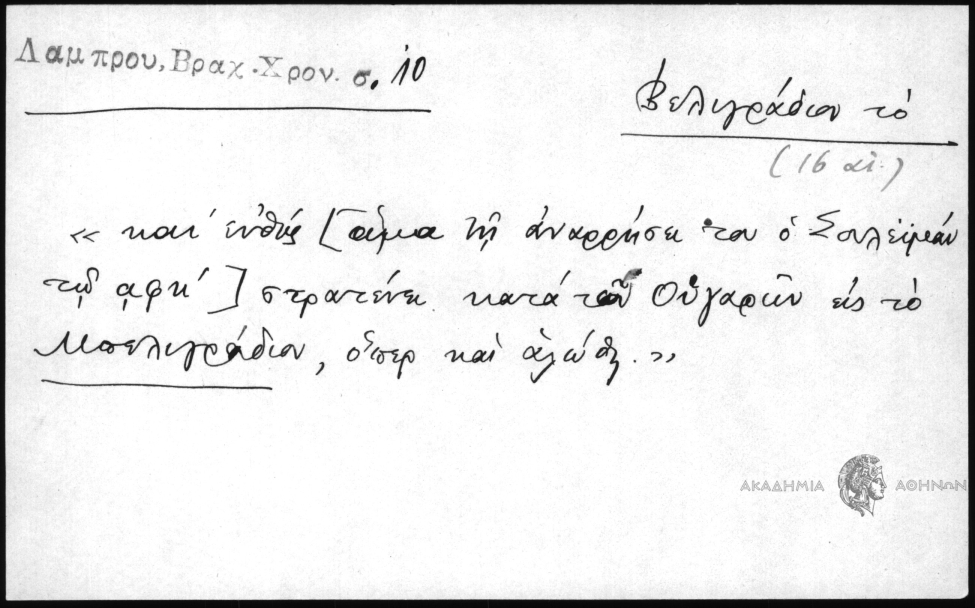 Λαμπρου, Βραχ. Χρον. σ. 10
Βελιγράδιον τό
(16 αἰ.)
« καί εὐθύς [ἅμα τῇ ἀναρρήσει του ὁ Σουλεϊμάν
τῷ ͵αφκ´] στρατεύει κατά τῶν Οὑγαρῶν εἰς τὸ
Μπελιγράδιον, ὅπερ καὶ ἁλώθη. »
ΑΚΑΔΗΜΙΑ ΑΘΗΝΩΝ